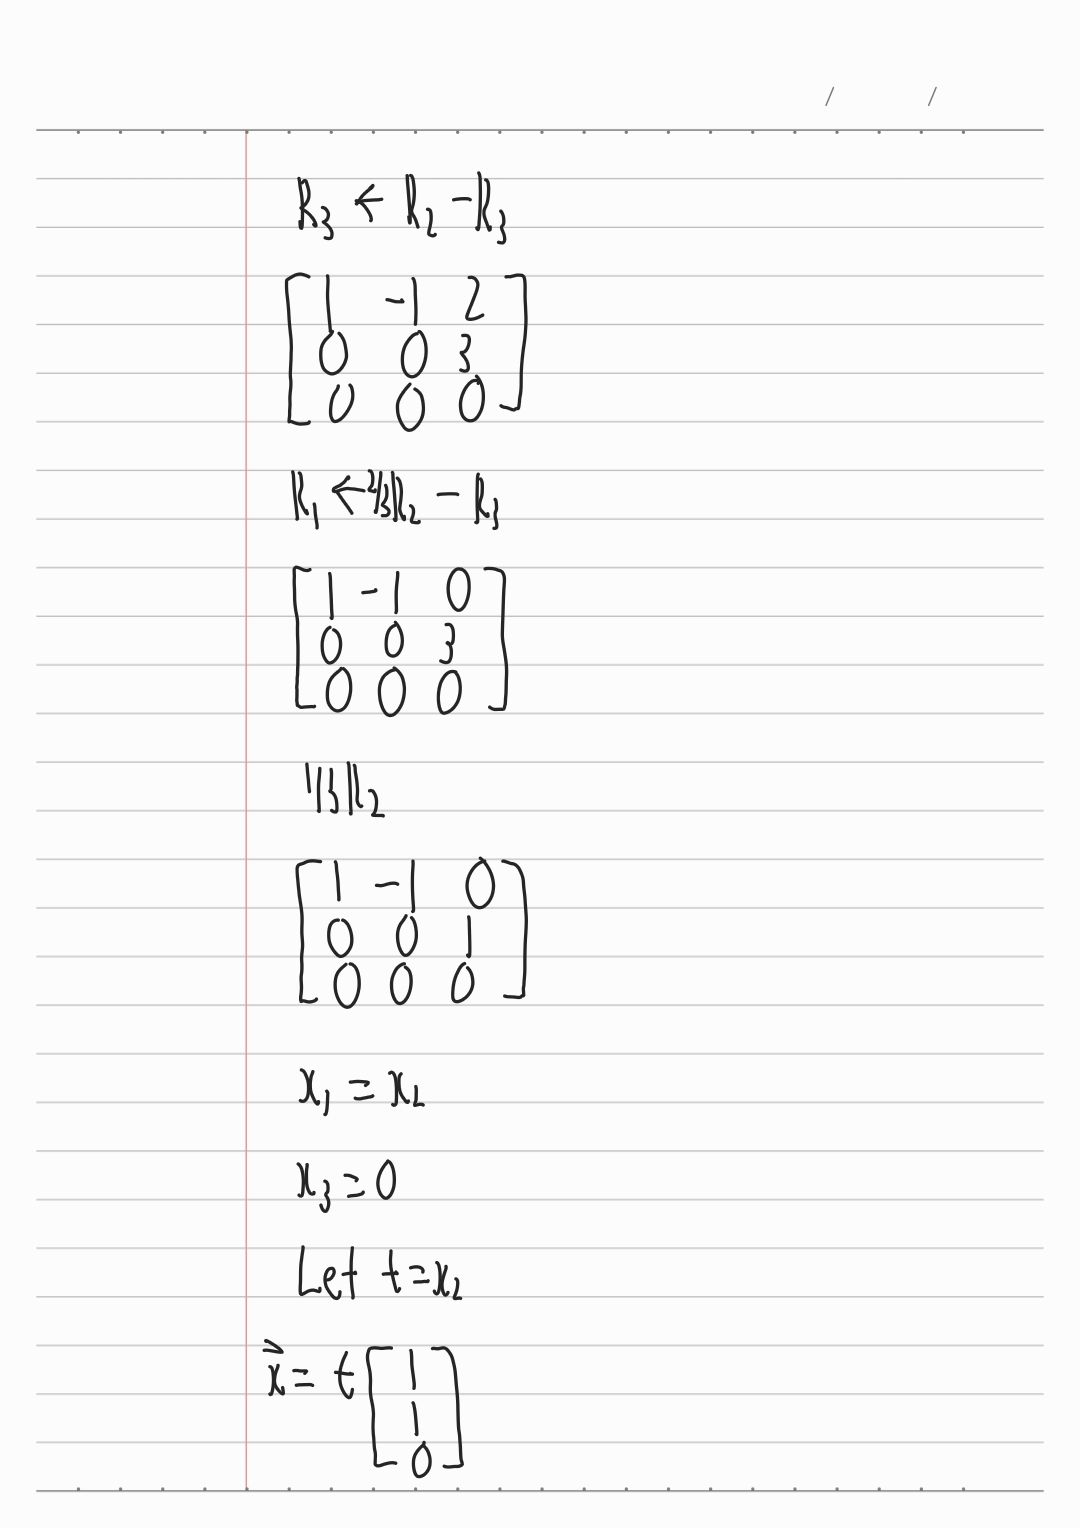 / /
R₃ ← R₂ - R₃
[ 1 -1 2 ]
[ 0 0 3 ]
[ 0 0 0 ]
R₁ ← 2/3R₂ - R₃
[ 1 -1 0 ]
[ 0 0 3 ]
[ 0 0 0 ]
1/3R₂
[ 1 -1 0 ]
[ 0 0 1 ]
[ 0 0 0 ]
x₁ = x₂
x₃ = 0
Let t = x₂
x⃗ = t [ 1
1
0 ]